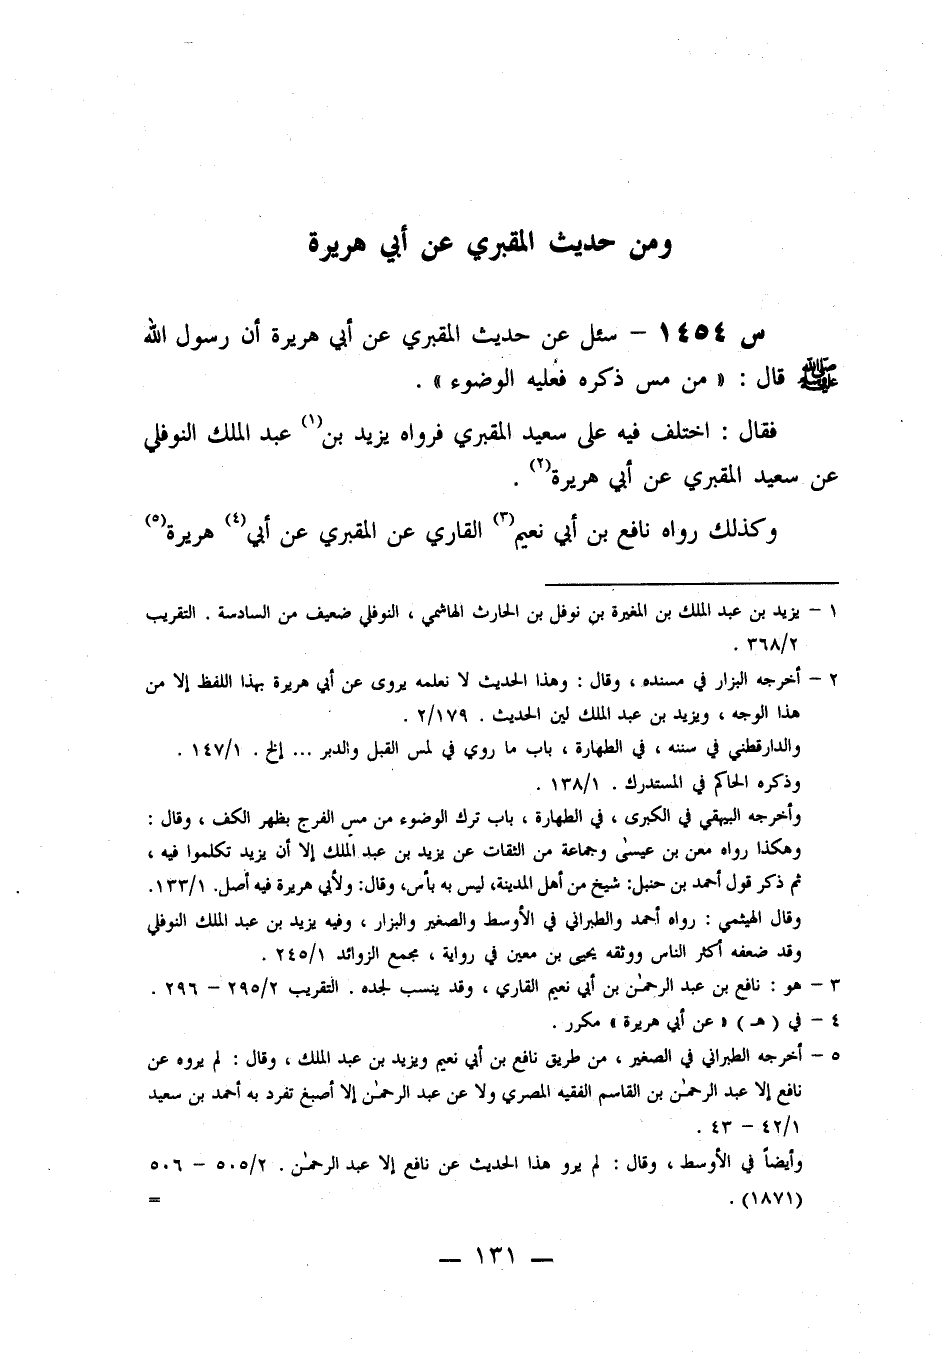 ومن حديث المقبري عن أبي هريرة
س ١٤٥٤ – سئل عن حديث المقبري عن أبي هريرة أن رسول الله
ﷺ قال : « من مس ذكره فعليه الوضوء » .
فقال : اختلف فيه على سعيد المقبري فرواه يزيد بن(١) عبد الملك النوفلي
عن سعيد المقبري عن أبي هريرة(٢) .
وكذلك رواه نافع بن أبي نعيم(٣) القاري عن المقبري عن أبي(٤) هريرة(٥)
١ – يزيد بن عبد الملك بن المغيرة بن نوفل بن الحارث الهاشمي ، النوفلي ضعيف من السادسة . التقريب
٣٦٨/٢ .
٢ – أخرجه البزار في مسنده ، وقال : وهذا الحديث لا نعلمه يروى عن أبي هريرة بهذا اللفظ إلا من
هذا الوجه ، ويزيد بن عبد الملك لين الحديث . ٢/١٧٩ .
والدارقطني في سننه ، في الطهارة ، باب ما روي في لمس القبل والدبر ... إلخ . ١٤٧/١ .
وذكره الحاكم في المستدرك . ١٣٨/١ .
وأخرجه البيهقي في الكبرى ، في الطهارة ، باب ترك الوضوء من مس الفرج بظهر الكف ، وقال :
وهكذا رواه معن بن عيسى وجماعة من الثقات عن يزيد بن عبد الملك إلا أن يزيد تكلموا فيه ،
ثم ذكر قول أحمد بن حنبل: شيخ من أهل المدينة، ليس به بأس، وقال: ولأبي هريرة فيه أصل. ١٣٣/١.
وقال الهيثمي : رواه أحمد والطبراني في الأوسط والصغير والبزار ، وفيه يزيد بن عبد الملك النوفلي
وقد ضعفه أكثر الناس ووثقه يحيى بن معين في رواية ، مجمع الزوائد ٢٤٥/١ .
٣ – هو : نافع بن عبد الرحمٰن بن أبي نعيم القاري ، وقد ينسب لجده . التقريب ٢٩٥/٢ – ٢٩٦ .
٤ – في ( هـ ) « عن أبي هريرة » مكرر .
٥ – أخرجه الطبراني في الصغير ، من طريق نافع بن أبي نعيم ويزيد بن عبد الملك ، وقال : لم يروه عن
نافع إلا عبد الرحمٰن بن القاسم الفقيه المصري ولا عن عبد الرحمٰن إلا أصبغ تفرد به أحمد بن سعيد
٤٢/١ – ٤٣ .
وأيضاً في الأوسط ، وقال : لم يرو هذا الحديث عن نافع إلا عبد الرحمٰن . ٥٠٥/٢ – ٥٠٦
(١٨٧١) . =
— ١٣١ —